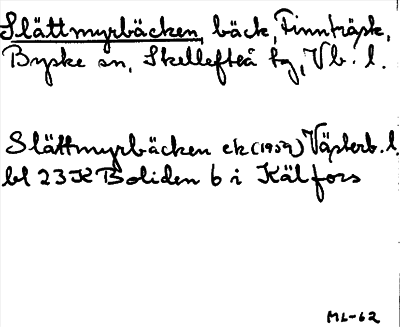 Slåttmyrbäcken, bäck, Finnträsk,
Byske sn, Skellefteå tg, Vb. l.
Slåttmyrbäcken ek (1959) Västerb. l.
bl 23K Boliden 6 i Kälfors
ML-62